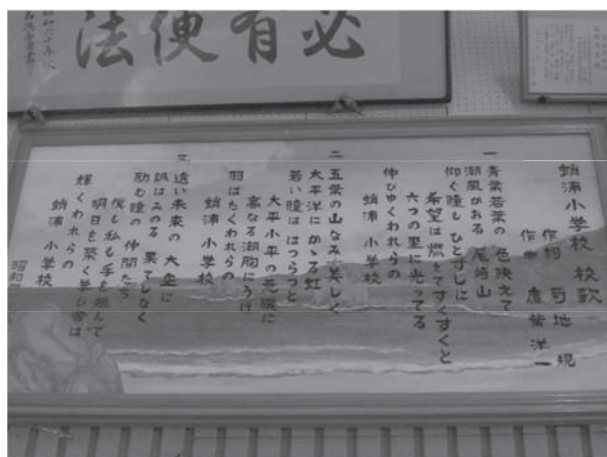 必有便法
蛸浦小学校 校歌
作詞 菊地 規
作曲 洋一
一 青葉若葉の 色映えて
潮風かおる 尾崎山
仰ぐ瞳も ひとすじに
希望は燃えてすくすくと
六つの里に光ってる
伸びゆくわれらの
蛸浦 小学校
二 五葉の山なみ美しく
太平洋にかゝる虹
若い瞳ははつらつと
太平小平の荒磯に
高なる潮胸にうけ
羽ばたくわれらの
蛸浦 小学校
三 遠い未来の 大空に
誠はみのる 果てしなく
励む瞳の 仲間たち
僕も私も手を組んで
明日を築く学び舎は
輝くわれらの
蛸浦 小学校
昭和